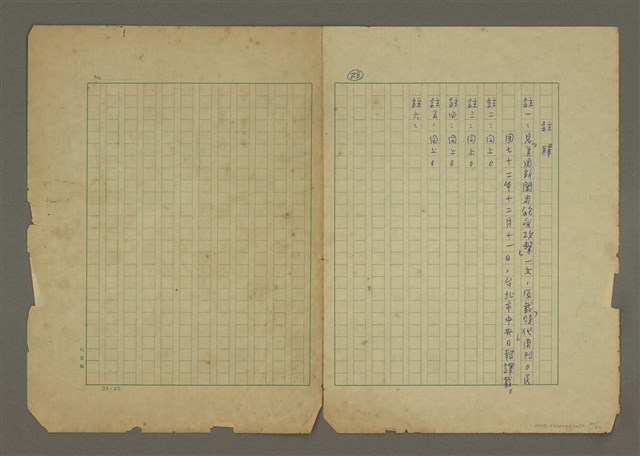 註釋
註一：見「美國新聞界飽受攻擊」一文，原載「時代」周刊。民
國七十二年十二月十一日，台北市中央日報譯載。
註二：同上。
註三：同上。
註四：同上。
註五：同上。
註六：
23
No.